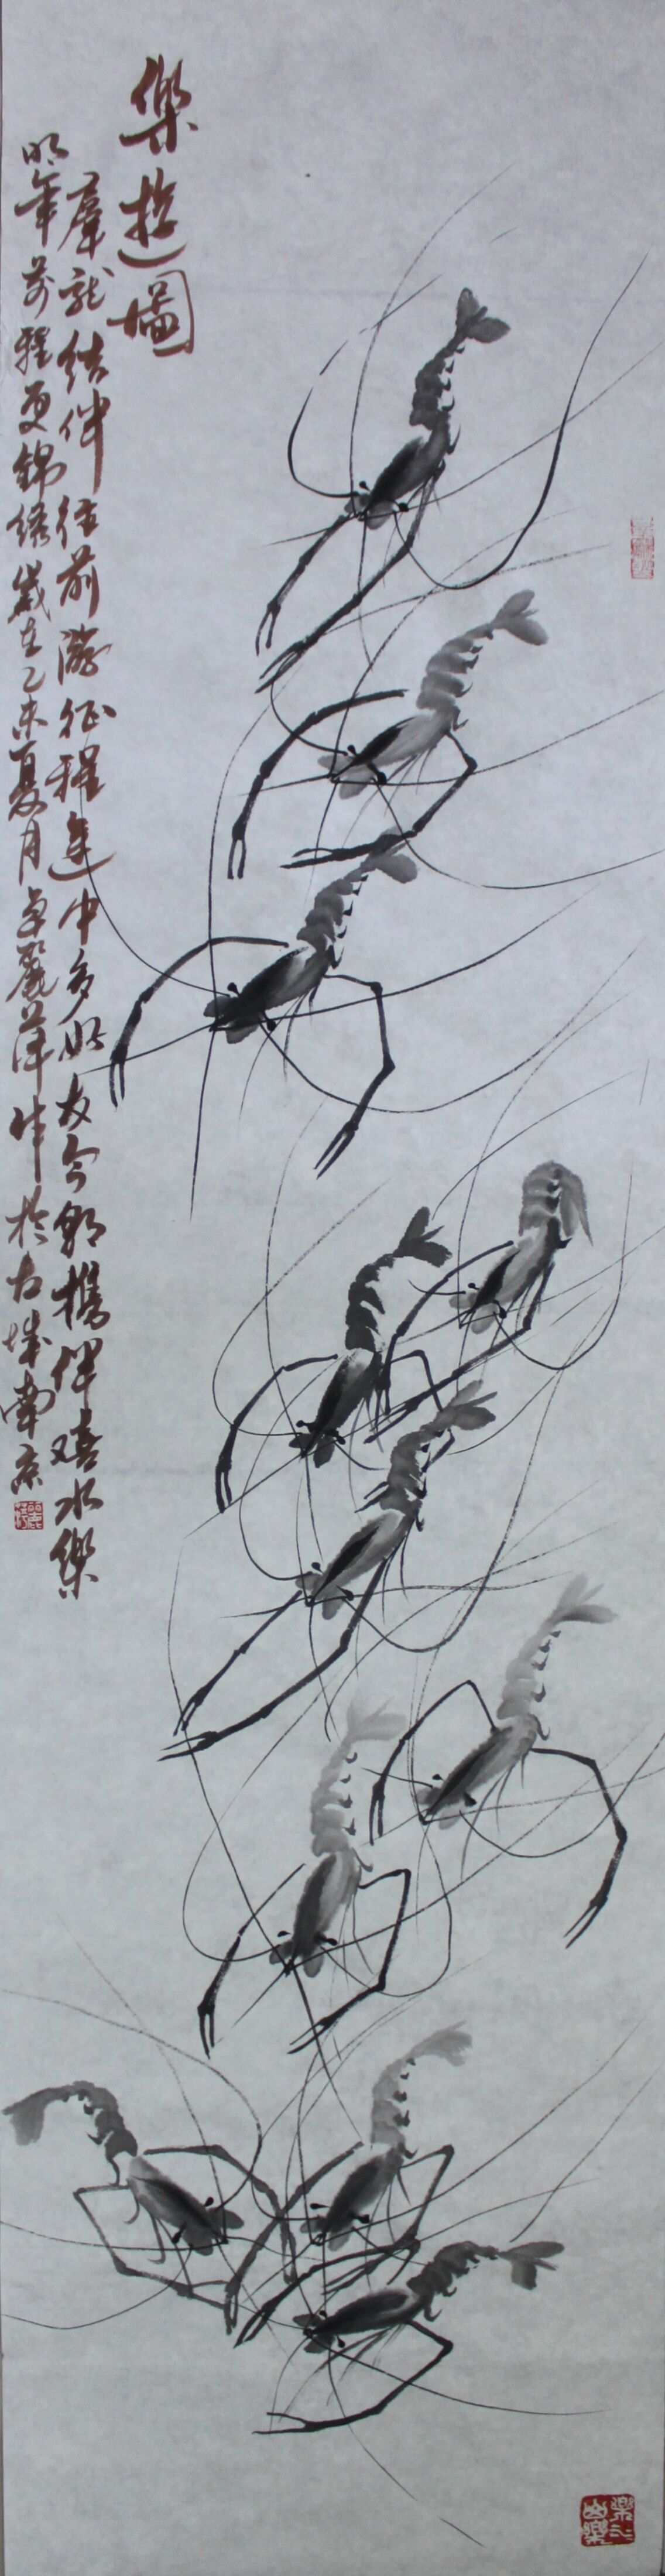 樂游圖
羣龍結伴往前游征程途中多好友今朝携伴嬉水樂
明年前程更錦綉歲在乙未夏月卓麗萍作於古城南京